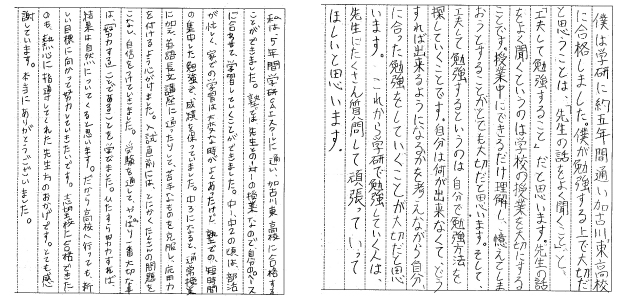 僕は学研に約五年間通い加古川東高校
に合格しました。僕が勉強する上で大切だ
と思うことは、「先生の話をよく聞く」こと、
「工夫して勉強すること」だと思います。先生の話
をよく聞くというのは学校の授業を大切にする
ことです。授業中にできるだけ理解し、憶えてしま
おうとすることがとても大切だと思います。そして、
工夫して勉強するというのは自分で勉強方法を
探していくことです。自分は何が出来なくて、どう
すれば出来るようになるかを考えながら自分
に合った勉強をしていくことが大切だと思
います。 これから学研で勉強していく人は、
先生にたくさん質問して頑張っていって
ほしいと思います。
私は、5年間学研に通い、加古川東高校に合格する
ことができました。塾では先生との1対1の授業なので、自分のペース
に合わせて学習していくことができました。中1、中2の頃は、部活
が忙しく、家での学習は大変な時がよくあったけど、塾での短時間
の集中した勉強で、成績を保っていました。中3になると、通常授業
に加え英語長文講座に通ったりと、苦手なものを克服し、応用力
を付けるよう心がけました。入試直前には、とにかくたくさんの問題を
こなし、自信をつけていきました。学習を通して、やっぱり一番大切な事
は「努力する」ことであることを学びました。ひたすら努力すれば、
結果は自然についてくると思います。だから高校へ行っても、新
しい目標に向かって努力していきたいです。志望校に合格できた
のも、熱心に指導してくれた先生方のおかげです。とても感
謝しています。本当にありがとうございました。